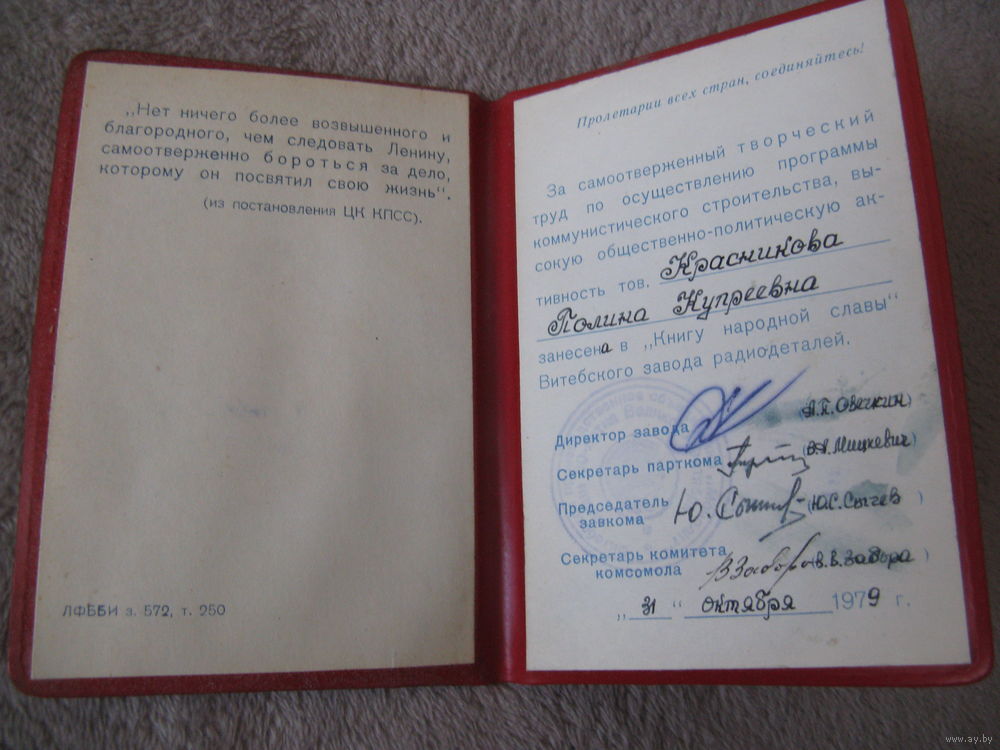 „Нет ничего более возвышенного и
благородного, чем следовать Ленину,
самоотверженно бороться за дело,
которому он посвятил свою жизнь“.
(из постановления ЦК КПСС).
ЛФББИ з. 572, т. 250
Пролетарии всех стран, соединяйтесь!
За самоотверженный творческий
труд по осуществлению программы
коммунистического строительства, вы-
сокую общественно-политическую ак-
тивность тов. Красникова
Полина Купреевна
занесена в „Книгу народной славы“
Витебского завода радиодеталей.
Директор завода (А.П.Овечкин)
Секретарь парткома Мицкевич)
Председатель
завкома Ю. Сычев (Ю.С.Сычев)
Секретарь комитета
комсомола В Забора (В.В.Забора)
„31“ октября 1979 г.
www.ay.by